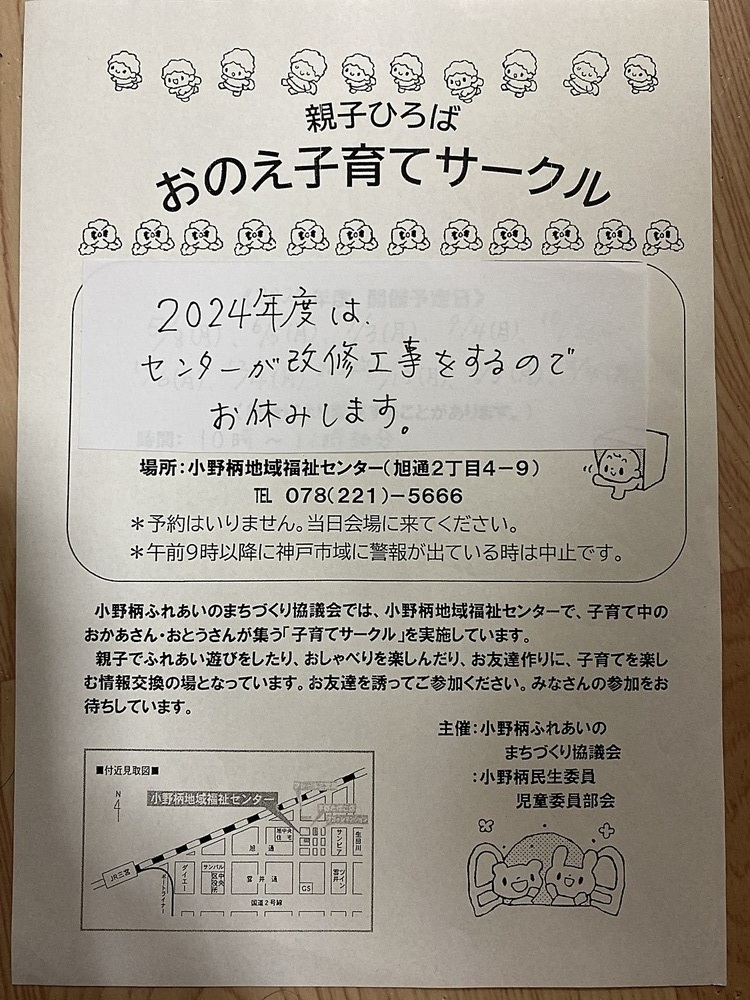 親子ひろば
おのえ子育てサークル
2024年度は、
センターが改修工事をするので
お休みします。
場所：小野柄地域福祉センター（旭通2丁目4－9）
℡ 078(221)－5666
＊予約はいりません。当日会場に来てください。
＊午前9時以降に神戸市域に警報が出ている時は中止です。
小野柄ふれあいのまちづくり協議会では、小野柄地域福祉センターで、子育て中の
おかあさん・おとうさんが集う「子育てサークル」を実施しています。
親子でふれあい遊びをしたり、おしゃべりを楽しんだり、お友達作りに、子育てを楽し
む情報交換の場となっています。お友達を誘ってご参加ください。みなさんの参加をお
待ちしています。
主催：小野柄ふれあいの
まちづくり協議会
：小野柄民生委員
児童委員部会
■付近見取図■
N
4
小野柄地域福祉センター
旭通
サンピア
生田川
JR三宮
ポートライナー
ダイエー
サンパル
中央区役所
雲井通
GS
ツイン雲井
国道2号線